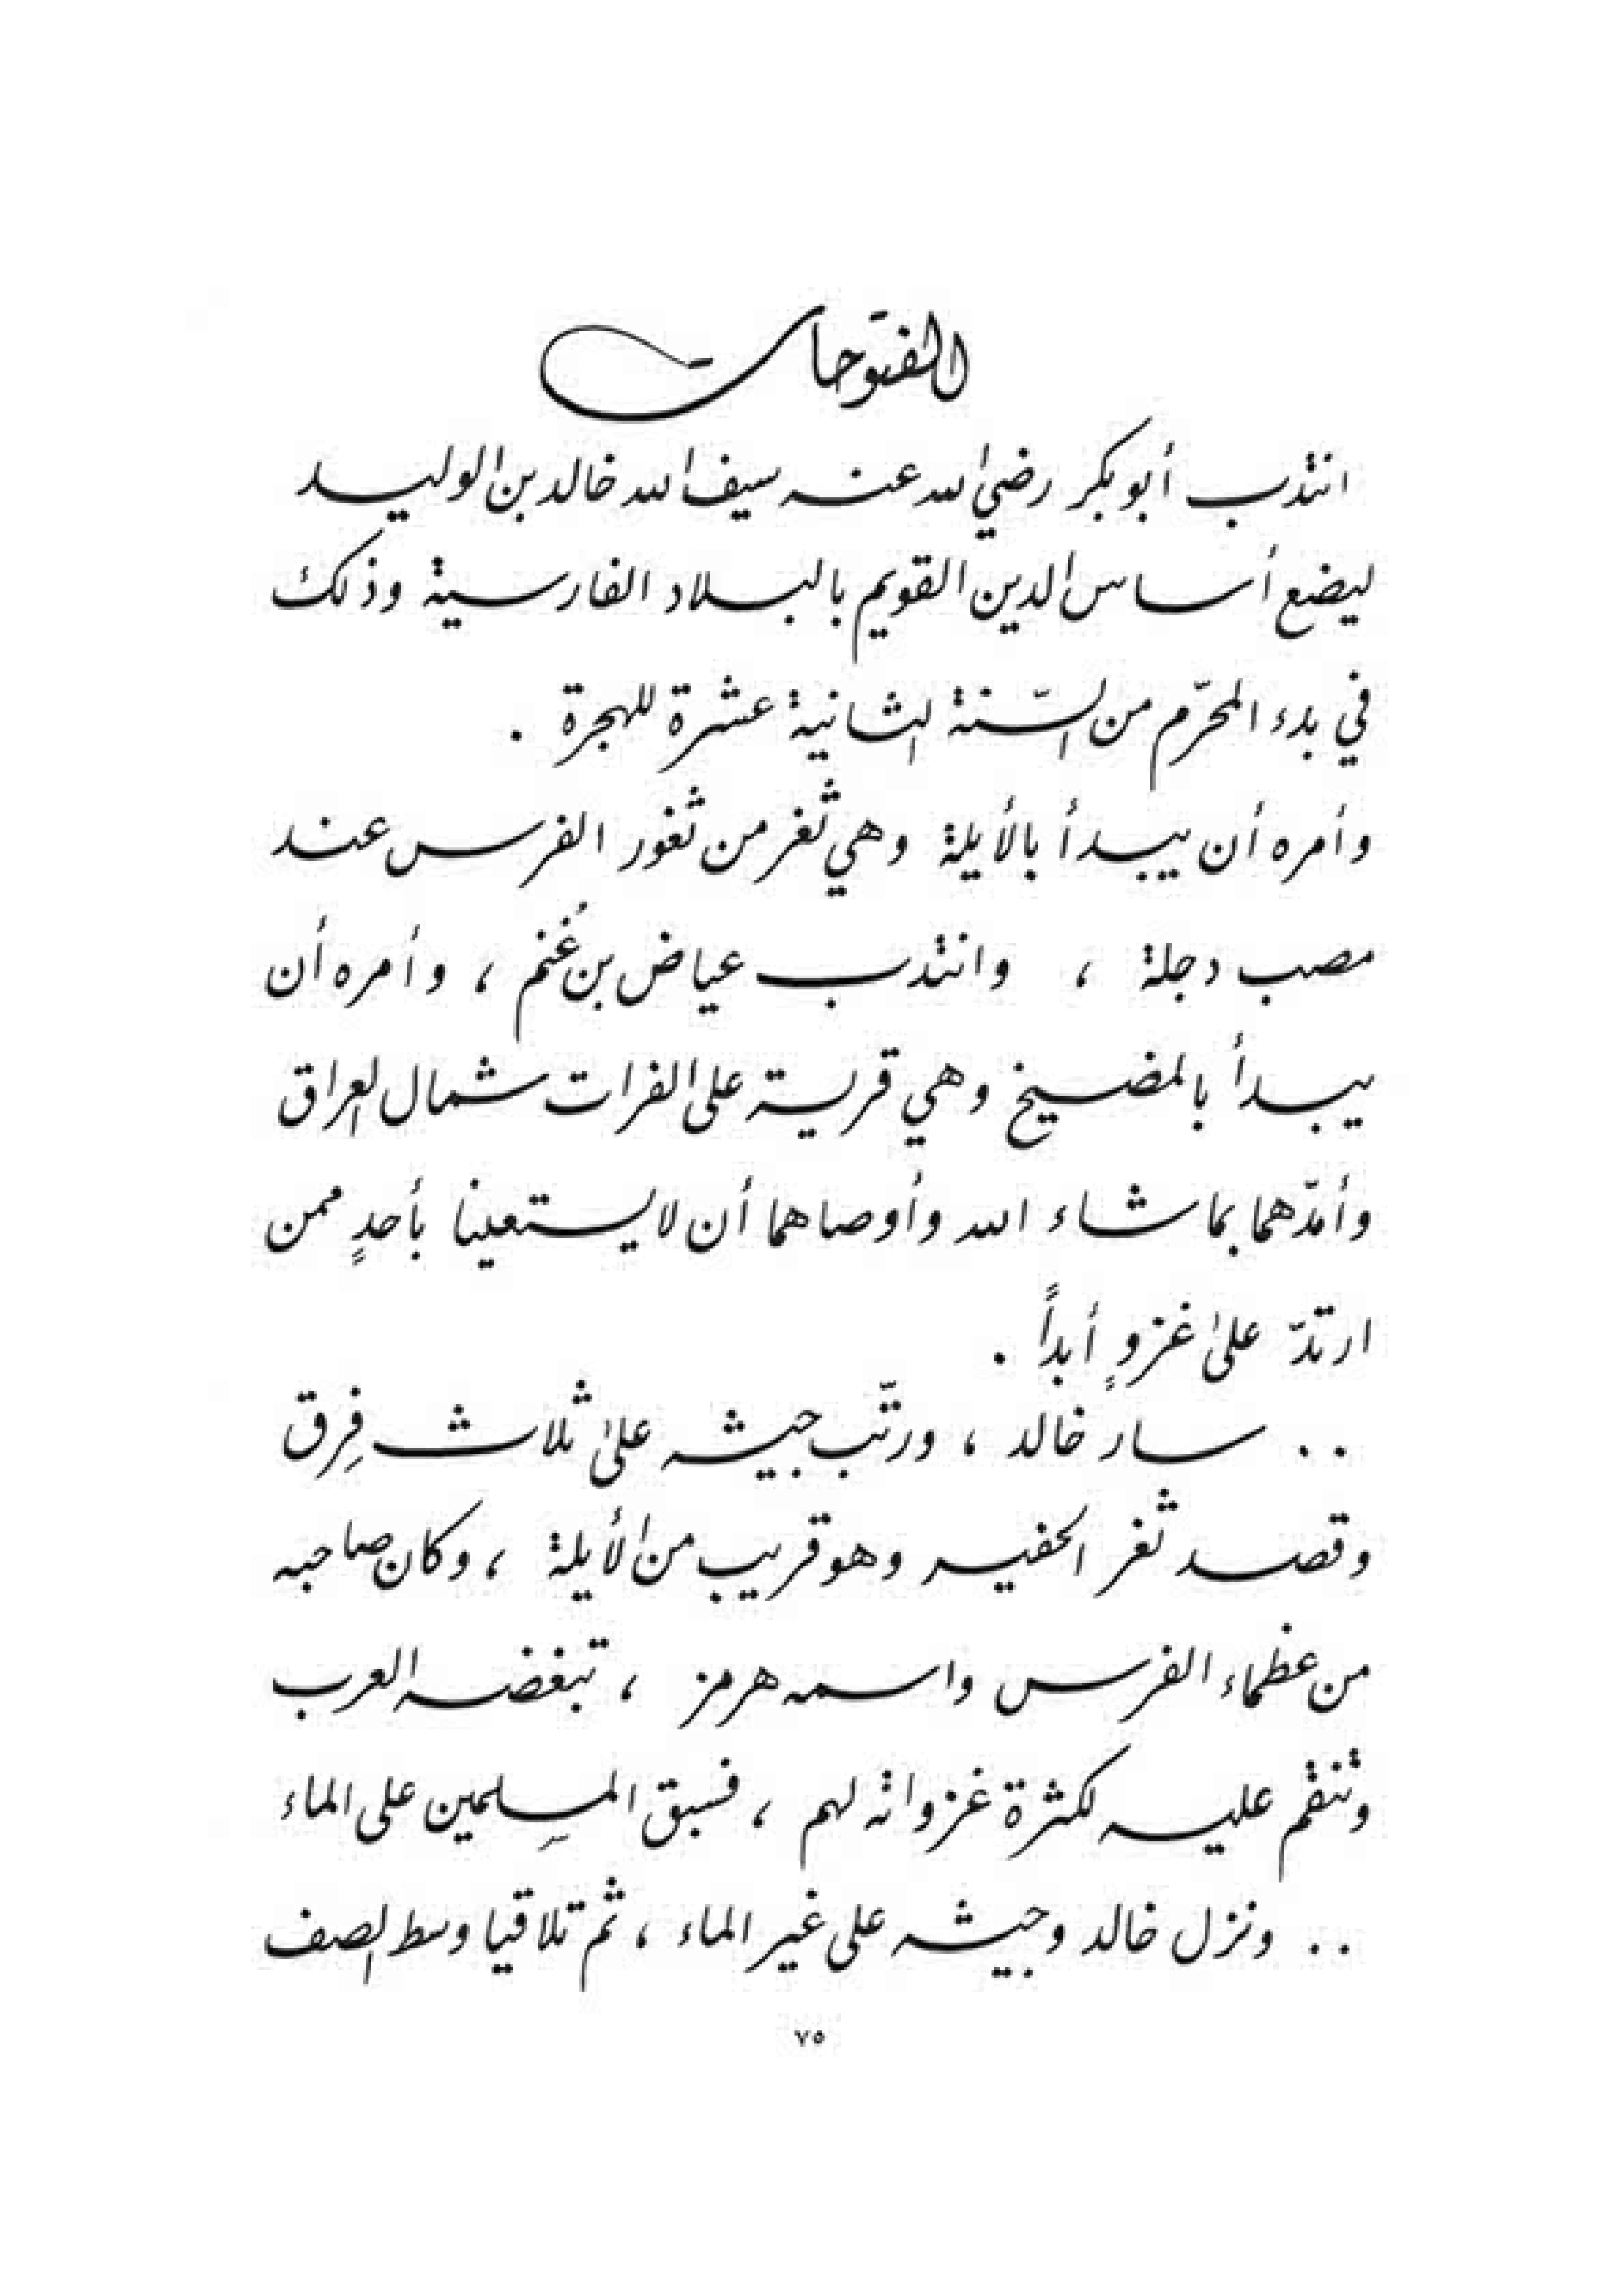 الفتوحات
انتدب أبو بكر رضي الله عنه سيف الله خالد بن الوليد
ليضع أساس الدين القويم بالبلاد الفارسية وذلك
في بدء المحرّم من السّنة الثانية عشرة للهجرة .
وأمره أن يبدأ بالأيلة وهي ثغر من ثغور الفرس عند
مصب دجلة ، وانتدب عياض بن غُنم ، وأمره أن
يبدأ بالمضيخ وهي قرية على الفرات شمال العراق
وأمدّهما بما شاء الله وأوصاهما أن لا يستعينا بأحدٍ ممن
ارتدّ على غزوٍ أبداً .
.. سار خالد ، ورتّب جيشه على ثلاث فِرق
وقصد ثغر الحفير وهو قريب من الأيلة ، وكان صاحبه
من عظماء الفرس واسمه هرمز ، تبغضه العرب
وتنقم عليه لكثرة غزواته لهم ، فسبق المسلِمين على الماء
.. ونزل خالد وجيشه على غير الماء ، ثم تلاقيا وسط الصف
٧٥